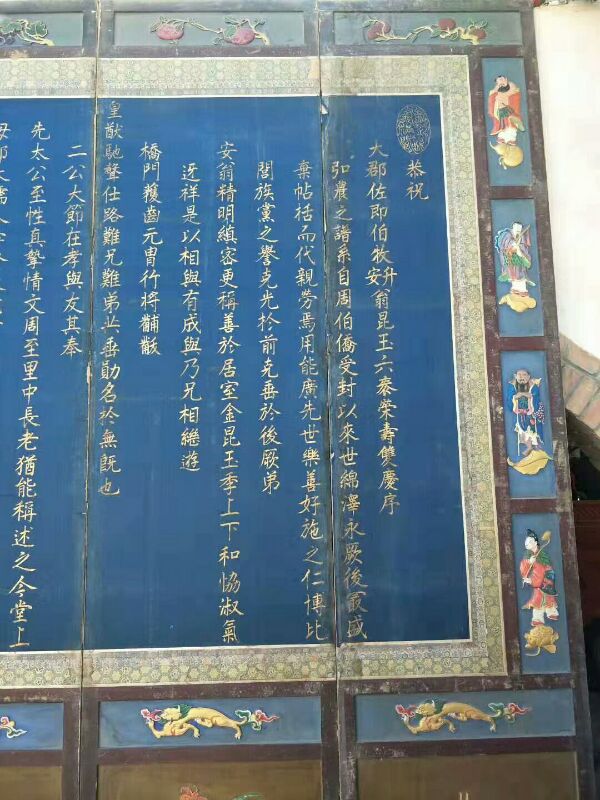 恭祝
大郡佐即伯牧升安翁昆玉六袠榮壽雙慶序
弘農之譜系自周伯僑受封以來世綿澤永厥後最盛
棄帖括而代親勞焉用能廣先世樂善好施之仁博比
閭族黨之譽克光於前克垂於後厥弟
安翁精明縝密更稱善於居室金昆玉季上下和恊淑氣
迓祥是以相與有成與乃兄相繼遊
橋門穫齒元胄行將黼黻
皇猷馳聲仕路難兄難弟並垂勛名於無既也
二公大節在孝與友其奉
先太公至性真摯情文周至里中長老猶能稱述之今堂上